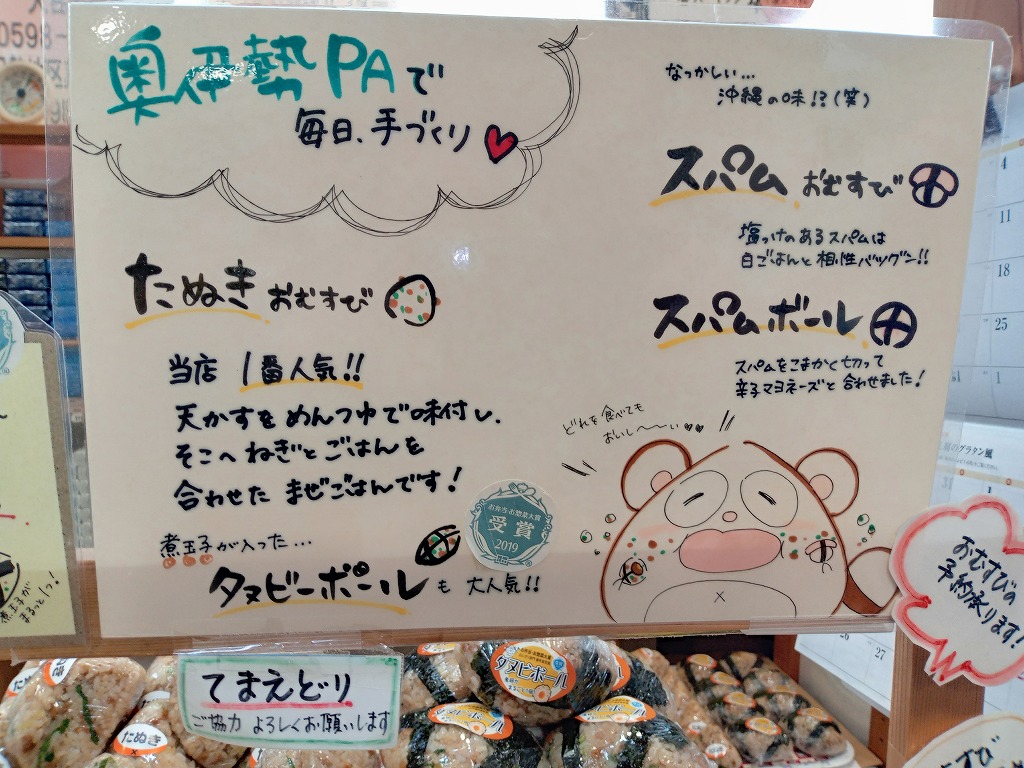 奥伊勢PAで
毎日、手づくり
たぬきおむすび
当店 1番人気!!
天かすをめんつゆで味付し、
そこへねぎとごはんを
合わせた まぜごはんです!
煮玉子が入った…
タヌビーボールも 大人気!!
なつかしい…
沖縄の味!?(笑)
スパムおむすび
塩っけのあるスパムは
白ごはんと相性バツグン!!
スパムボール
スパムをこまかく切って
辛子マヨネーズと合わせました!
どれを食べても
おいし〜〜い
お弁当・お惣菜大賞
受賞
2019
おむすびの
予約承ります!
てまえどり
ご協力 よろしくお願いします
たぬき
タヌビボール
煮玉子が
まるっと1つ!
0598-
4
11
18
25
1
26
27
グラタン風